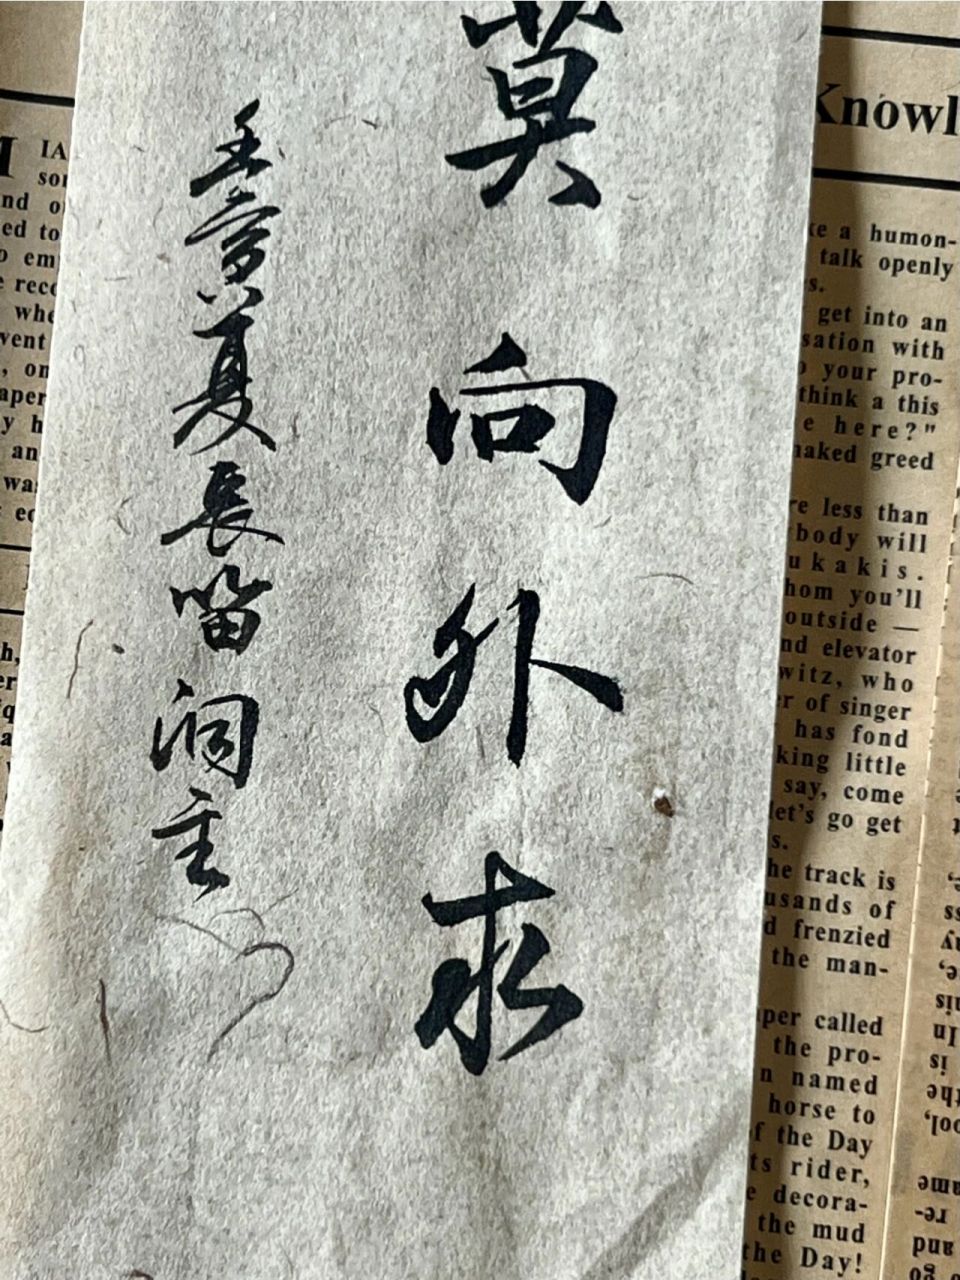 莫向外求
壬寅夏長笛洞主
Knowl
e a humon-
talk openly
s.
get into an
sation with
your pro-
think a this
e here?"
naked greed
re less than
body will
ukakis.
hom you'll
outside —
nd elevator
witz, who
r of singer
has fond
king little
say, come
let's go get
s.
he track is
usands of
d frenzied
the man-
per called
the pro-
n named
horse to
f the Day
ts rider,
e decora-
the mud
the Day!